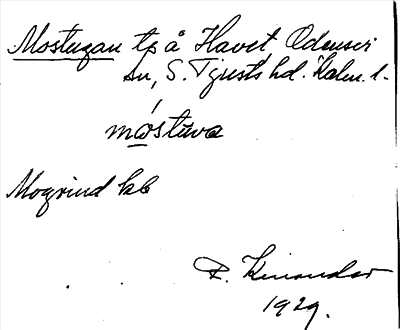 Mostugan tp å Havet, Odensvi
sn, S. Tjusts hd. Kalm. l.
mostuva
Mogrind kb
R. Kinander
1929.